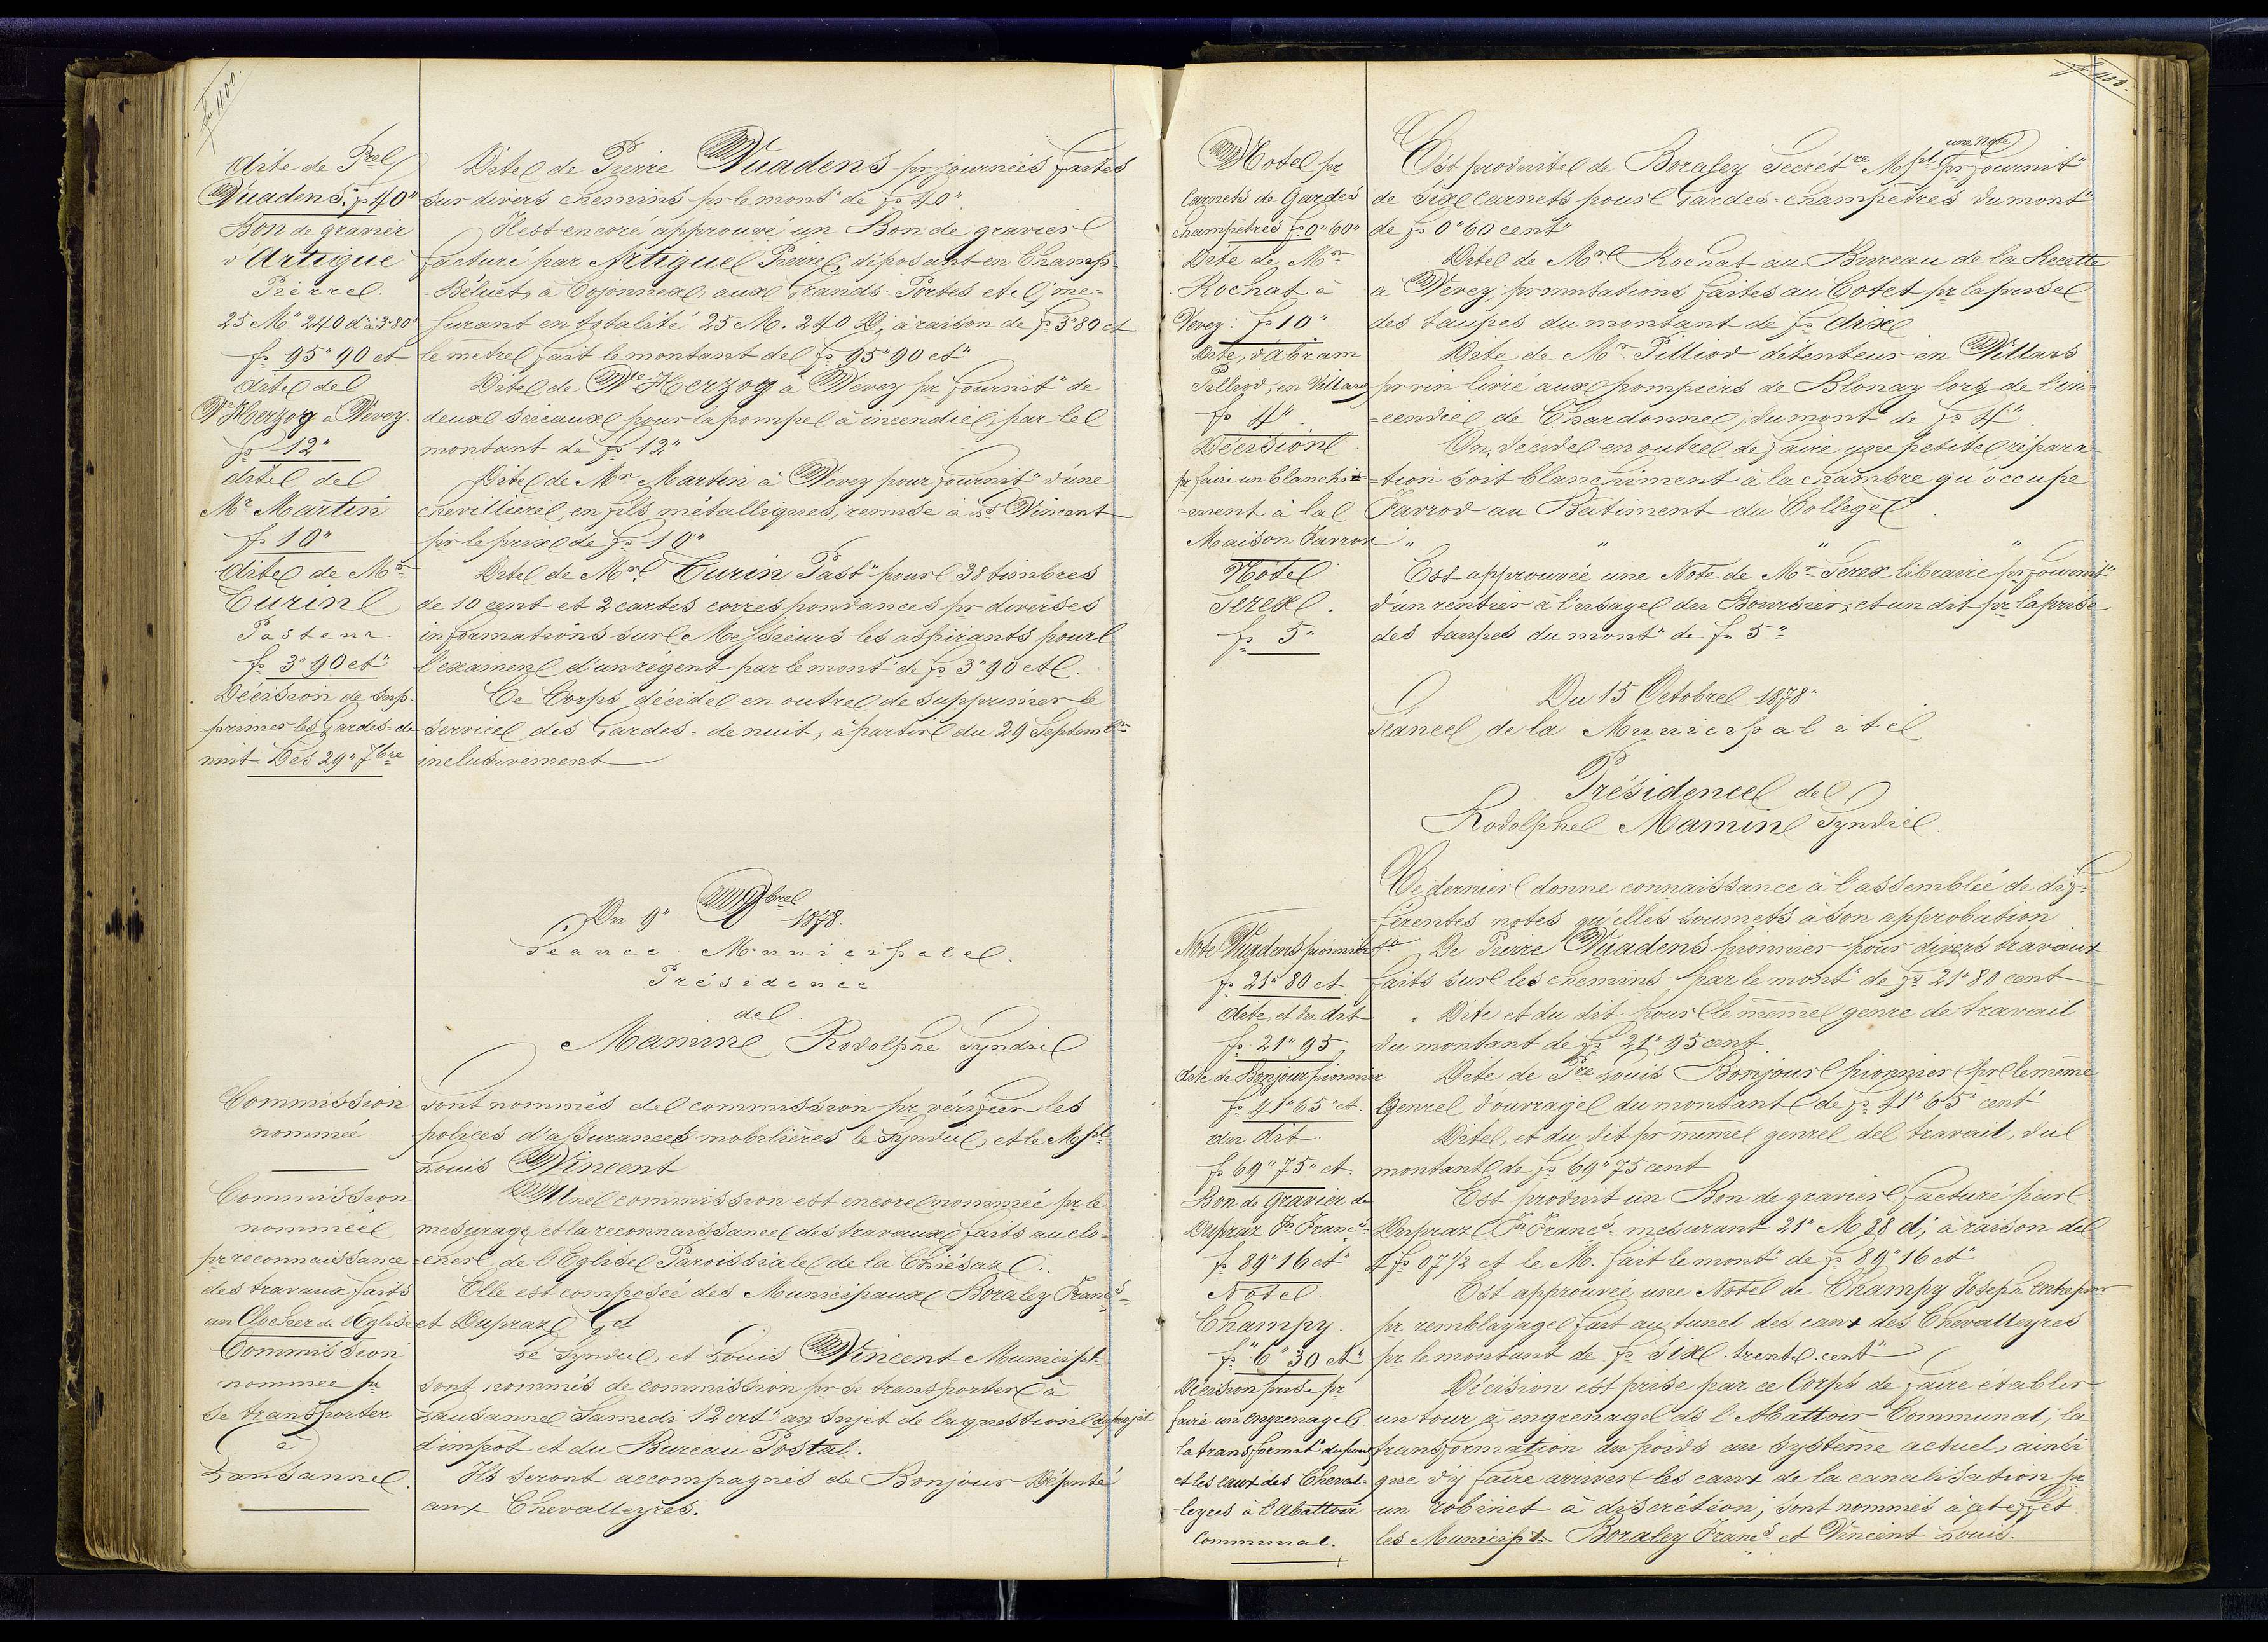 fo 400.
dite de Prre
Vuadens: fs 40"
Dite de Pierre Vuadens pr journées faites
sur divers chemins pr le mont de fs 40"
Bon de gravier
d'Artigue
Pierre.
25 M" 240 d" à 3"80"
fs 95"90 ct
Il est encore approuvé un Bon de gravier
facturé par Artigue Pierre, déposant en Champ-
-Béluet, à Cojonnex, aux Grands-Portes etc, me-
surant en totalité 25 M. 240 D, à raison de fs 3"80 ct
le mètre, fait le montant de fs 95"90 ct"
dite de
Ve Herzog à Vevey.
fs 12"
Dite de Ve Herzog à Vevey pr fournit" de
deux sceaux pour la pompe à incendie, par le
montant de fs 12"
dite de
Mr Martin
fs 10"
Dite de Mr Martin à Vevey pour fournit" d'une
chevillière en fils métalliques, remise à Ls Vincent
pr le prix de fs 10"
dite de Mr
Turin
Pasteur.
fs 3"90 ct"
Dite de Mr Turin Past" pour 38 timbres
de 10 cent et 2 cartes correspondances pr diverses
informations sur Messieurs les aspirants pour
l'examen d'un régent par le mont" de fs 3"90 ct.
Décision de sup-
-primer les Gardes-de
nuit. Dès 29" 7bre
Ce Corps décide en outre de supprimer le
service des Gardes-de nuit, à partir du 29 Septembre
inclusivement
Du 9" 8bre 1878.
Séance Municipale.
Présidence
de
Mamin Rodolphe Syndic
Commission
nommée
Sont nommés de commission pr vérifier les
polices d'assurances mobilières le Syndic, et le Mpl
Louis Vincent
Commission
nommée
pr reconnaissance
des travaux faits
au Clocher de l'Eglise
Une commission est encore nommée pr le
mesurage et la reconnaissance des travaux faits au clo-
-cher de l'Eglise Paroissiale de la Chiésaz.
Elle est composée des Municipaux Boraley Francs
et Dupraz
Commission
nommée pr
se transporter
à
Lausanne.
Le Syndic, et Louis Vincent Municipl
sont nommés de commission pr se transporter à
Lausanne Samedi 12 crt" au sujet de la question du projet
d'impôt et du Bureau Postal.
Ils seront accompagnés de Bonjour Député
aux Chevalleyres.
fo 401.
Note pr
Carnets de Gardes
Champêtres fs 0"60"
une Note
Est produite de Boraley Secrétre Mpl pr fournit"
de six carnets pour Gardes-champêtres du mont"
de fs 0"60 cent"
Dite de Mr
Rochat à
Vevey: fs 10"
Dite de Mr Rochat au Bureau de la Recette
à Vevey, pr mutations faites au Cotet pr la prise
des taupes du montant de fs dix
Dite, d'Abram
Pilliod, en Villars
fs 4"
Dite de Mr Pilliod détenteur en Villars
pr vin livré aux pompiers de Blonay lors de l'in-
-cendie de Chardonne, du mont de fs 4".
Décision
pr faire un blanchis-
-ement à la
Maison Parrod
On décide en outre de faire une petite répara-
-tion soit blanchiment à la chambre qu'occupe
Parrod au Batiment du Collège.
" " " "
Note
Serex.
fs 5"
Est approuvée une Note de Mr Serex libraire pr fournit"
d'un rentier à l'usage du Boursier, et un dit pr la prise
des taupes du mont" de fs 5"
Du 15 Octobre 1878"
Séance de la Municipalité
Présidence de
Rodolphe Mamin Syndic.
Ce dernier donne connaissance à l'assemblée de dif-
-férentes notes qu'elle soumets à son approbation
Note Vuadens pionnier
fs 21"80 ct
1o De Pierre Vuadens pionnier pour divers travaux
faits sur les chemins par le mont" de fs 21"80 cent
dite, et du dit
fs 21"95
" Dite et du dit pour le même genre de travail
du montant de fs 21"95 cent.
dite de Bonjour pionnier
fs 41"65"ct.
Dite de Pre Louis Bonjour pionnier pr le même
genre d'ouvrage du montant de fs 41"65" cent"
du dit.
fs 69"75"ct.
Dite, et du dit pr même genre de travail, du
montant de fs 69"75 cent
Bon de Gravier de
Dupraz Jn Francs
fs 89"16 ct"
Est produit un Bon de gravier facturé par
Dupraz Jn Francs mesurant 21" M 88 d; à raison de
4 fs 07 1/2 ct le M. fait le mont" de fs 89"16 ct"
Note.
Champy.
fs "6"30 ct"
Est approuvée une Note de Champy Joseph Entrepr
pr remblayage fait au tunel des eaux des Chevalleyres
pr le montant de fs six. trente. cent"
Décision prise pr
faire un engrenage
la transformat" du poids
et les eaux des Cheval-
-leyres à l'Abattoir
Communal.
Décision est prise par ce Corps de faire établir
un tour à engrenage ds l'Abattoir Communal; la
transformation du poids au système actuel, ainsi
que d'y faire arriver les eaux de la canalisation pr
un robinet à discrétion; sont nommés à cet effet
les Municipx Boraley Francs et Vincent Louis.